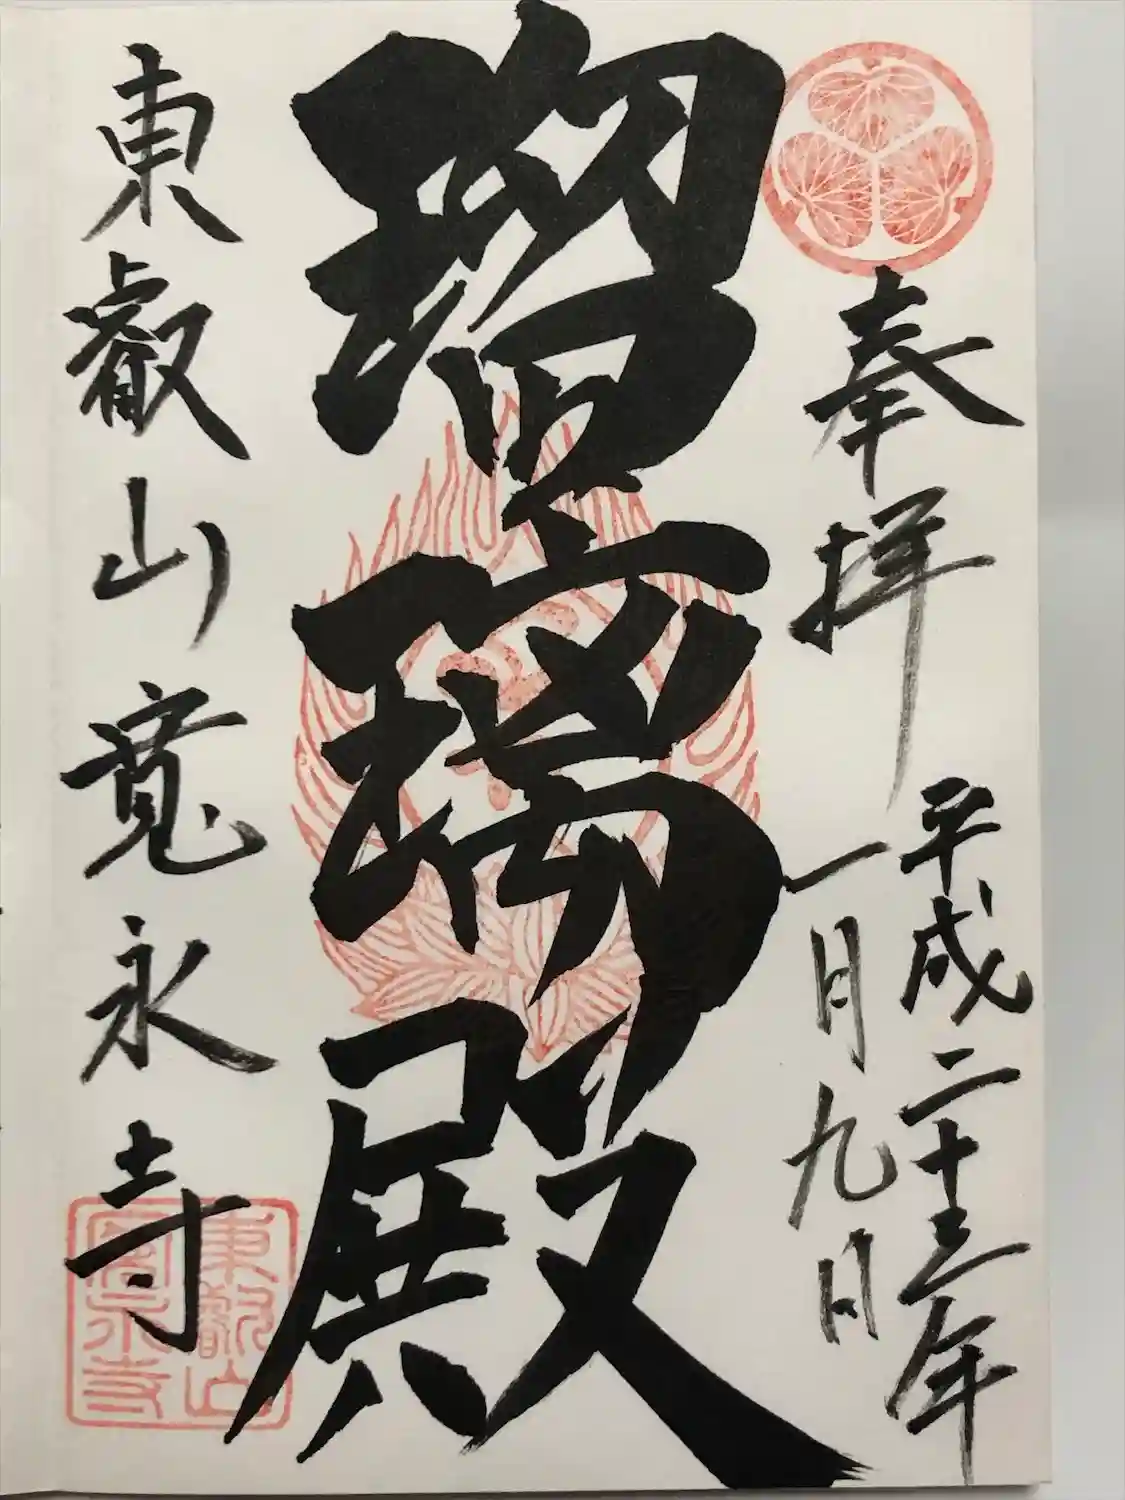 奉拝
平成二十三年
一月九日
瑠璃殿
東叡山寛永寺
東叡山
寛永寺